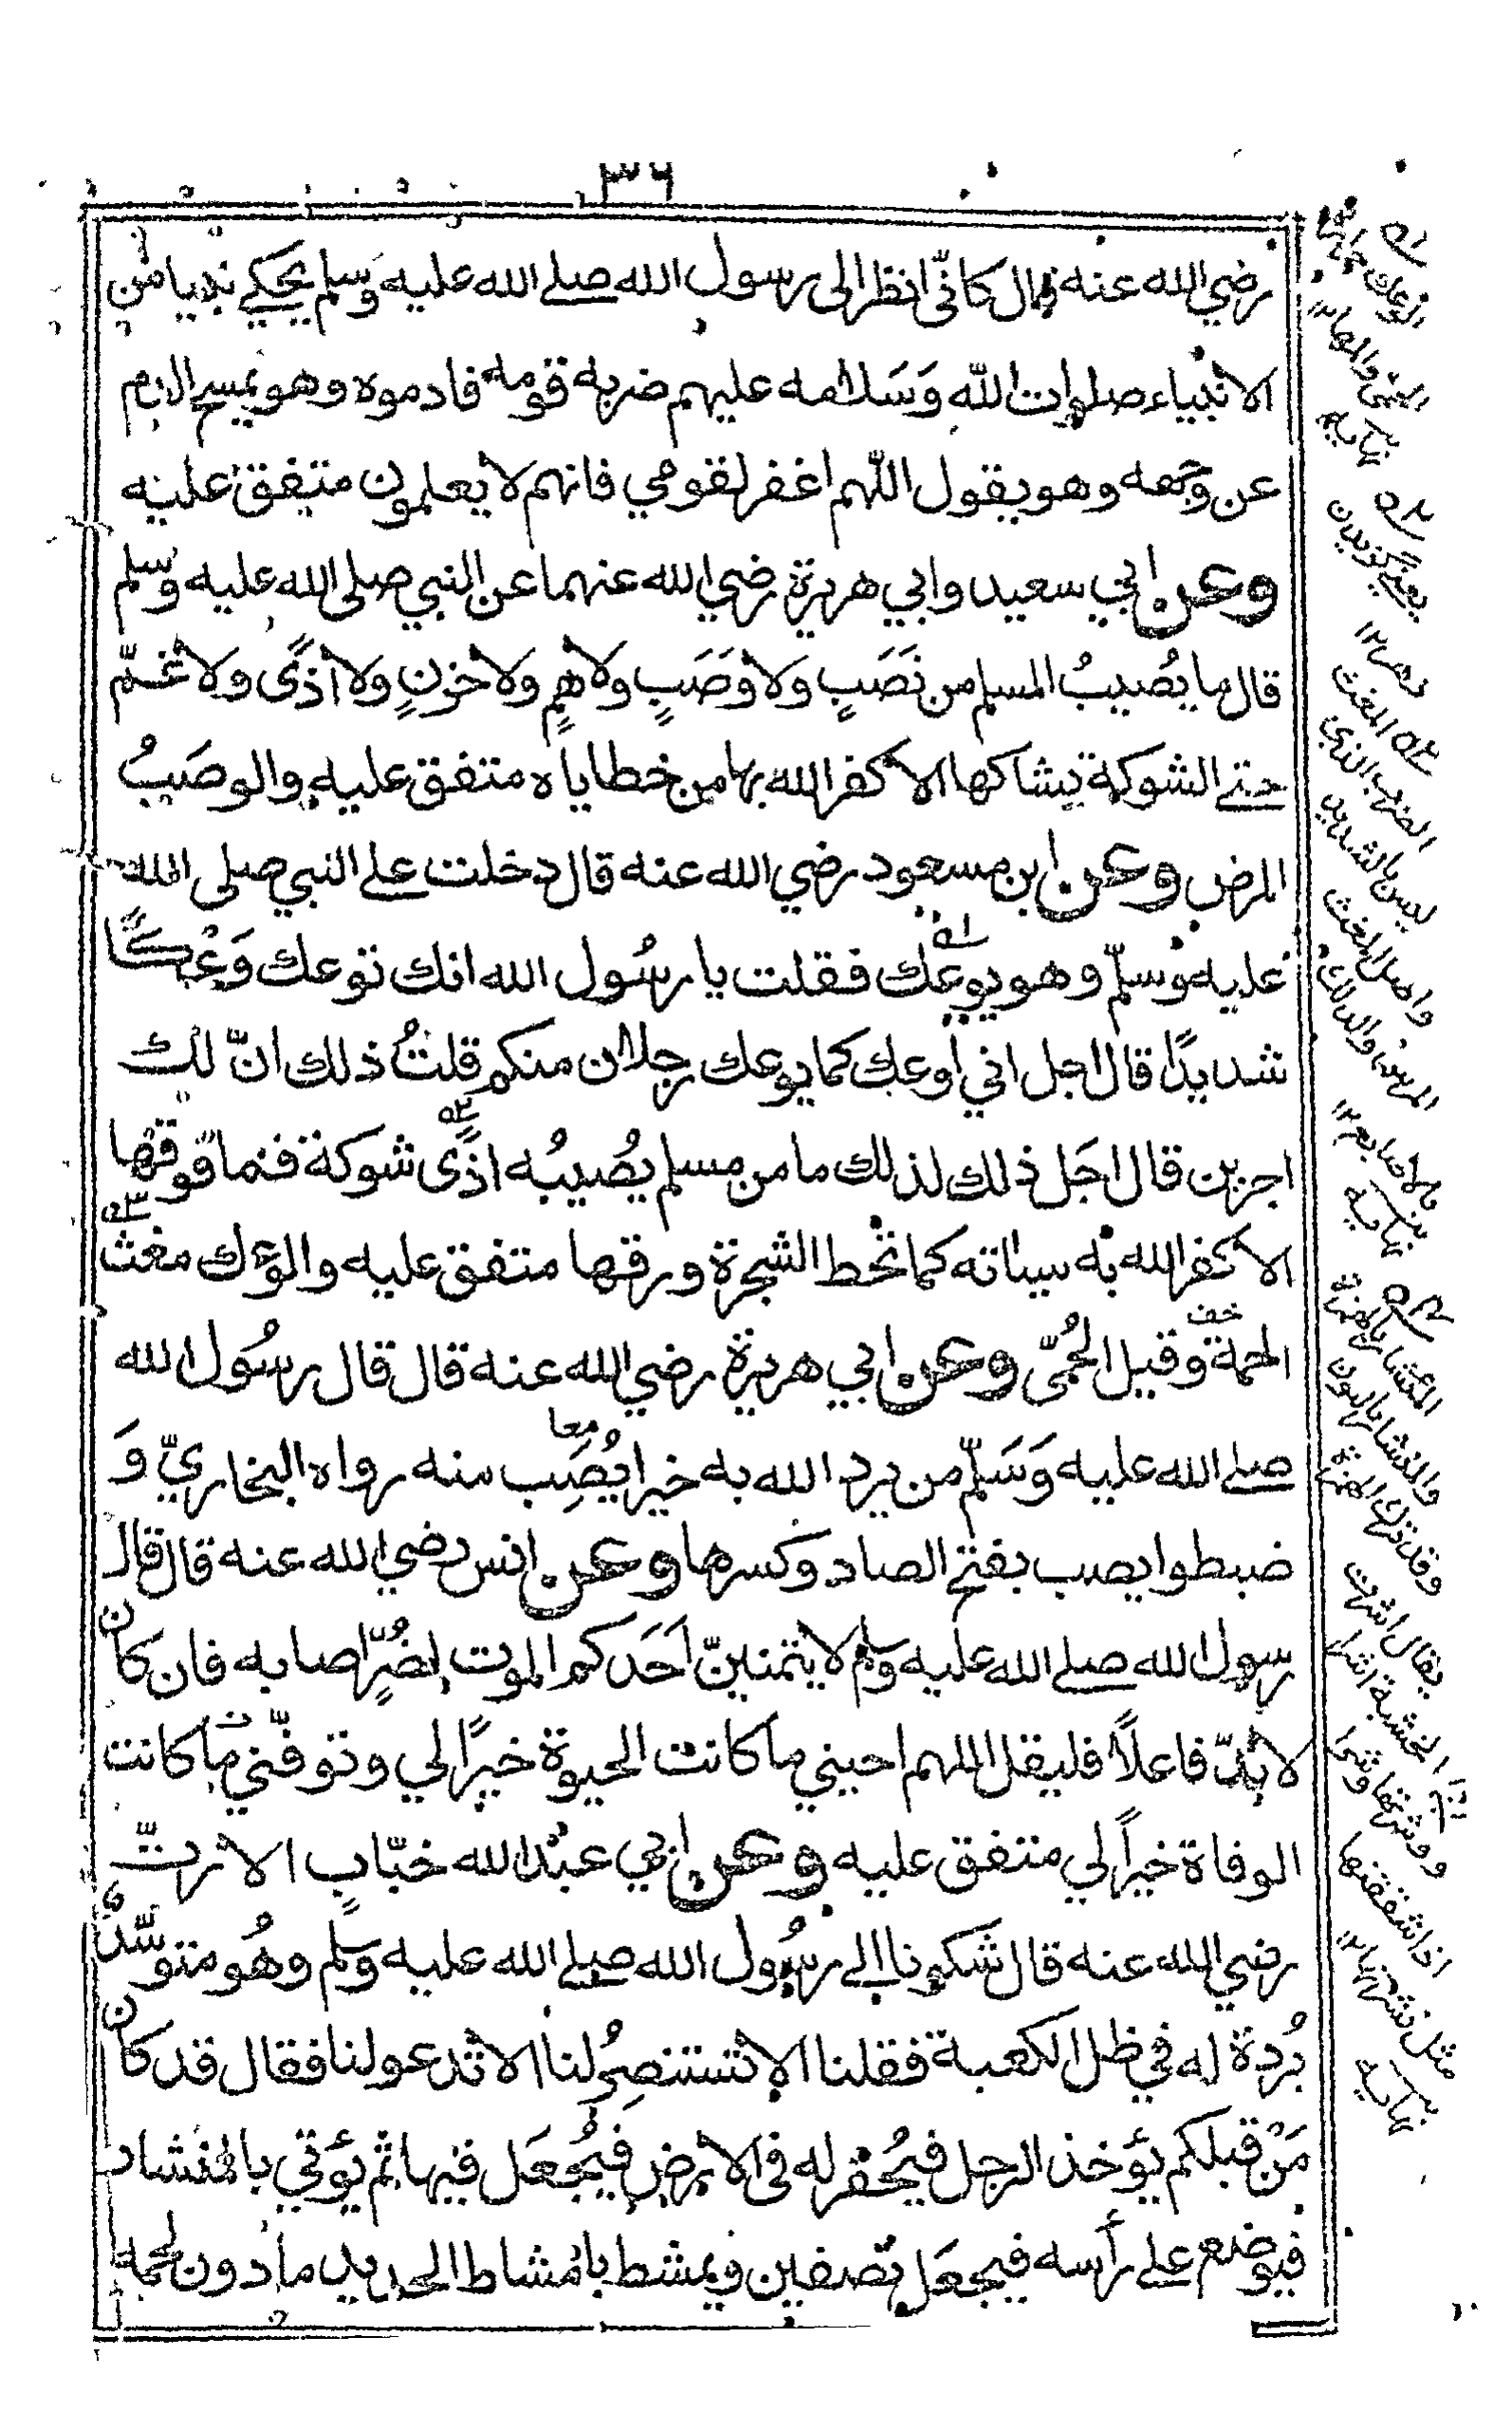 ٣٦
رضي الله عنه قال كانّي انظر الى رسول الله صلے الله عليه وسلم يحكے نبيا من
الانبياء صلوات الله وَسَلامه عليهم ضربه قومه فادموه وهو يمسح الدم
عن وجهه وهو يقول اللّهم اغفر لقومي فانهم لا يعلمون متفق عليه
وعن ابي سعيد وابي هريرة رضي الله عنهما عن النبي صلى الله عليه وسلم
قال ما يُصيبُ المسلم من نَصَبٍ ولا وَصَبٍ ولا هٍم ولا حزنٍ ولا اذًى ولا غمّ
حتے الشوكة يشاكها الا كفر الله بها من خطاياه متفق عليه والوصَبُ
المرض وعن ابن مسعود رضي الله عنه قال دخلت علے النبي صلى الله
عليه وسلّم وهو يوعك فقلت يا رسُول الله انك توعك وَعْكًا
شديدًا قال اجل اني اوعك كما يوعك رجلان منكم قلتُ ذلك انّ لك
اجرين قال اجَل ذلك لذلك ما من مسلم يُصيبُه اذًى شوكة فما فوقها
الا كفر الله به سيأته كما تحط الشجرة ورقها متفق عليه والوعك مغث
الحمة وقيل الحُمّى وعن ابي هريرة رضي الله عنه قال قال رسُول الله
صلے الله عليه وَسَلّم من يرد الله به خيرا يُصَِب منه رواه البخاريّ وَ
معا
ضبطوا يصب بفتح الصاد وكسرها وعن انس رضي الله عنه قال قال
رسول الله صلے الله عليه وسلم لا يتمنينّ اَحَدكم الموت لضُرٍّ اصابه فان كان
لا بُدّ فاعلاً فليقل اللهم احيني ما كانت الحيوة خيرًا لي وتوفّني ما كانت
الوفاة خيراً لي متفق عليه وعن ابي عبد الله خبّابٍ الارتّ
رضي الله عنه قال شكونا الے رسُول الله صلے الله عليه وسلم وهُو متوسّدٌ
بُردة له في ظل الكعبة فقلنا الا تستنصِرُ لنا الا تدعو لنا فقال قد كان
مَنْ قبلكم يؤخذ الرجل فيُحفر له فى الارض فيُجعَل فيها ثم يؤتي بالمنشار
فيوضع علے رأسه فيجعَل نصفين ويمشط بامُشاط الحديد ما دون لحمه
الوعك
نهايه
المغث
الضرب الذي
ليس بالشديد
واصل المغث
المرس والدلك
بالاصابع ١٢
نهاية
المئشار بالهمزة
والمنشار بالنون
وقد تترك الهمزة
يقال اشرت
الخشبة اشرا
ووشرتها وشرا
اذا شققتها
مثل نشرتها ١٢
نهاية